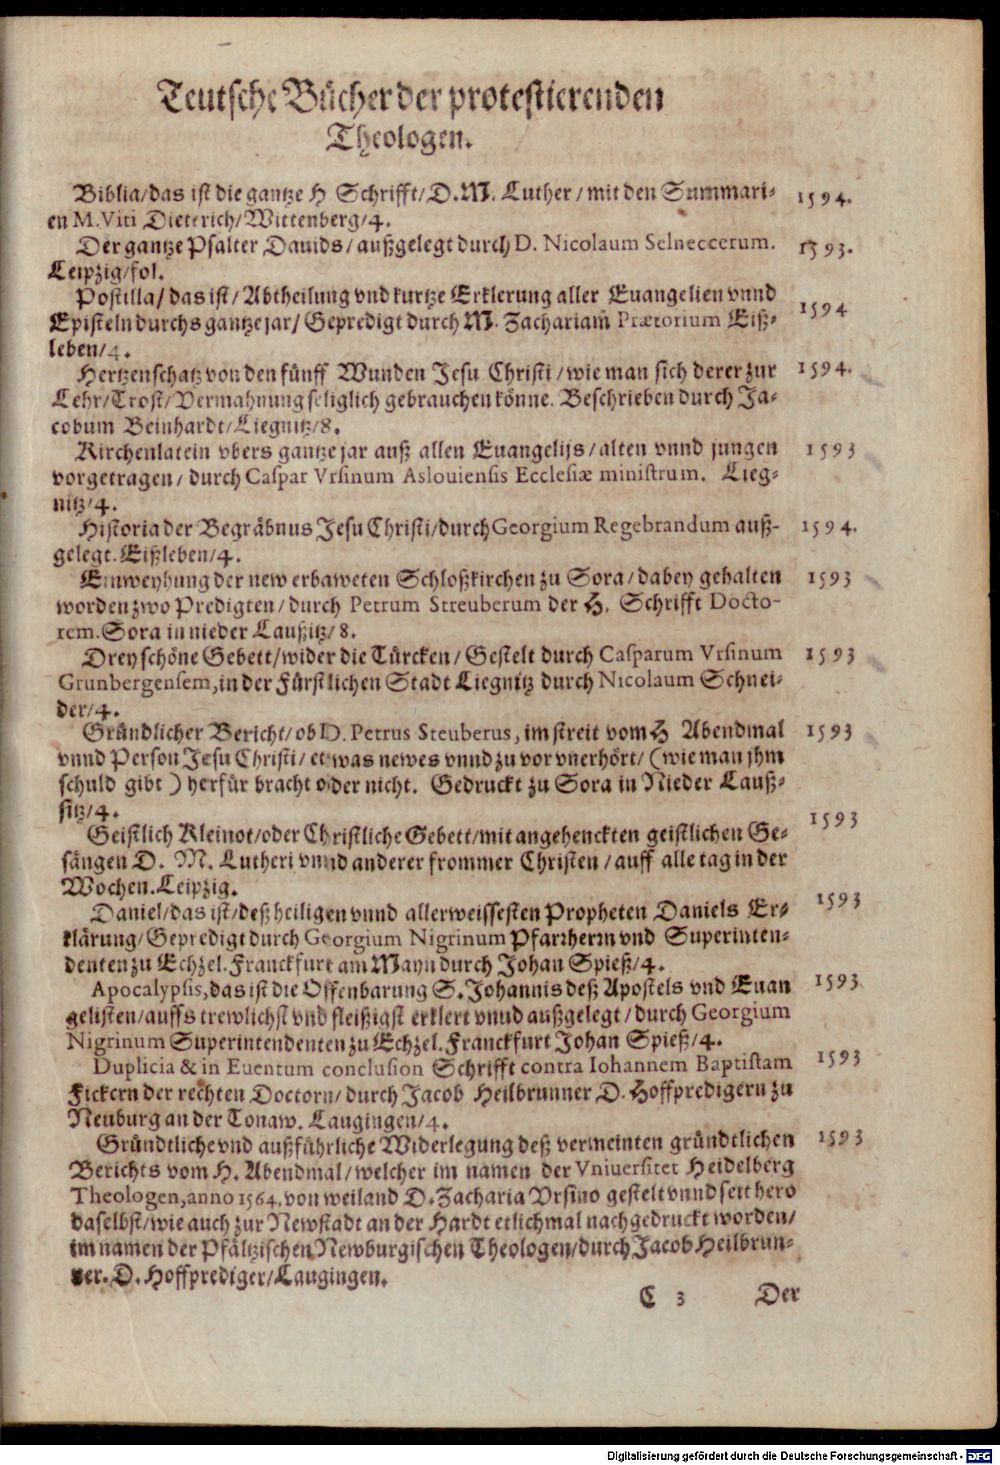 Teutsche Bücher der protestierenden
Theologen.
Biblia/das ist die gantze H Schrifft/D.M. Luther/mit den Summari- 1594.
en M.Viti Dieterich/Wittenberg/4.
Der gantze Psalter Dauids/außgelegt durch D. Nicolaum Selneccerum. 1593.
Leipzig/fol.
Postilla/das ist/Abtheilung vnd kurtze Erklerung aller Euangelien vnnd
Episteln durchs gantze jar/Gepredigt durch M. Zachariam Prætorium Eiß- 1594
leben/4.
Hertzenschatz von den fünff Wunden Jesu Christi/wie man sich derer zur 1594.
Lehr/Trost/Vermahnung seliglich gebrauchen könne. Beschrieben durch Ja-
cobum Beinhardt/Liegnitz/8.
Kirchenlatein vbers gantze jar auß allen Euangelijs/alten vnnd jungen 1593
vorgetragen/durch Caspar Vrsinum Aslouiensis Ecclesiæ ministrum. Lieg-
nitz/4.
Historia der Begräbnus Jesu Christi/durch Georgium Regebrandum auß- 1594.
gelegt. Eißleben/4.
Einweyhung der new erbaweten Schloßkirchen zu Sora/dabey gehalten 1593
worden zwo Predigten/durch Petrum Streuberum der H. Schrifft Docto-
rem. Sora in nieder Laußitz/8.
Drey schöne Gebett/wider die Türcken/Gestelt durch Casparum Vrsinum 1593
Grunbergensem,in der Fürstlichen Stadt Liegnitz durch Nicolaum Schnei-
der/4.
Gründlicher Bericht/ob D. Petrus Steuberus, im streit vom H Abendmal 1593
vnnd Person Jesu Christi/etwas newes vnnd zuvor vnerhört/(wie man jhm
schuld gibt) herfür bracht oder nicht. Gedruckt zu Sora in Nieder Lauß-
sitz/4.
Geistlich Kleinot/oder Christliche Gebett/mit angehenckten geistlichen Ge- 1593
sängen D. M. Lutheri vnnd anderer frommer Christen/auff alle tag in der
Wochen.Leipzig.
Daniel/das ist/deß heiligen vnnd allerweissesten Propheten Daniels Er- 1593
klärung/Gepredigt durch Georgium Nigrinum Pfarrherrn vnd Superinten-
denten zu Echzel.Franckfurt am Mayn durch Johan Spieß/4.
Apocalypsis,das ist die Offenbarung S.Johannis deß Apostels vnd Euan 1593
gelisten/auffs trewlichst vnd fleißigst erklert vnnd außgelegt/durch Georgium
Nigrinum Superintendenten zu Echzel.Franckfurt Johan Spieß/4.
Duplicia & in Euentum conclusion Schrifft contra Iohannem Baptistam 1593
Fickern der rechten Doctorn/durch Jacob Heilbrunner D. Hoffpredigern zu
Neuburg an der Tonaw. Laugingen/4.
Gründtliche vnd außführliche Widerlegung deß vermeinten gründtlichen 1593
Berichts vom H. Abendmal/welcher im namen der Vniuersitet Heidelberg
Theologen,anno 1564.von weiland D. Zacharia Vrsino gestelt vnnd seit hero
daselbst/wie auch zur Newstadt an der Hardt etlichmal nachgedruckt worden/
im namen der Pfältzischen Newburgischen Theologen/durch Jacob Heilbrun-
ner. D. Hoffprediger/Laugingen.
C 3 Der
Digitalisierung gefördert durch die Deutsche Forschungsgemeinschaft - DFG